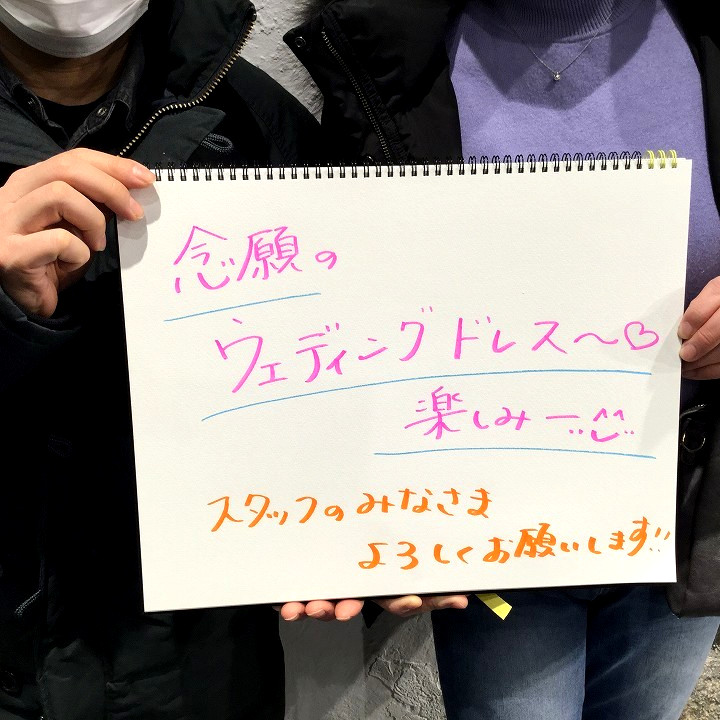 念願の
ウェディングドレス〜♡
楽しみー!!
スタッフのみなさま
よろしくお願いします!!